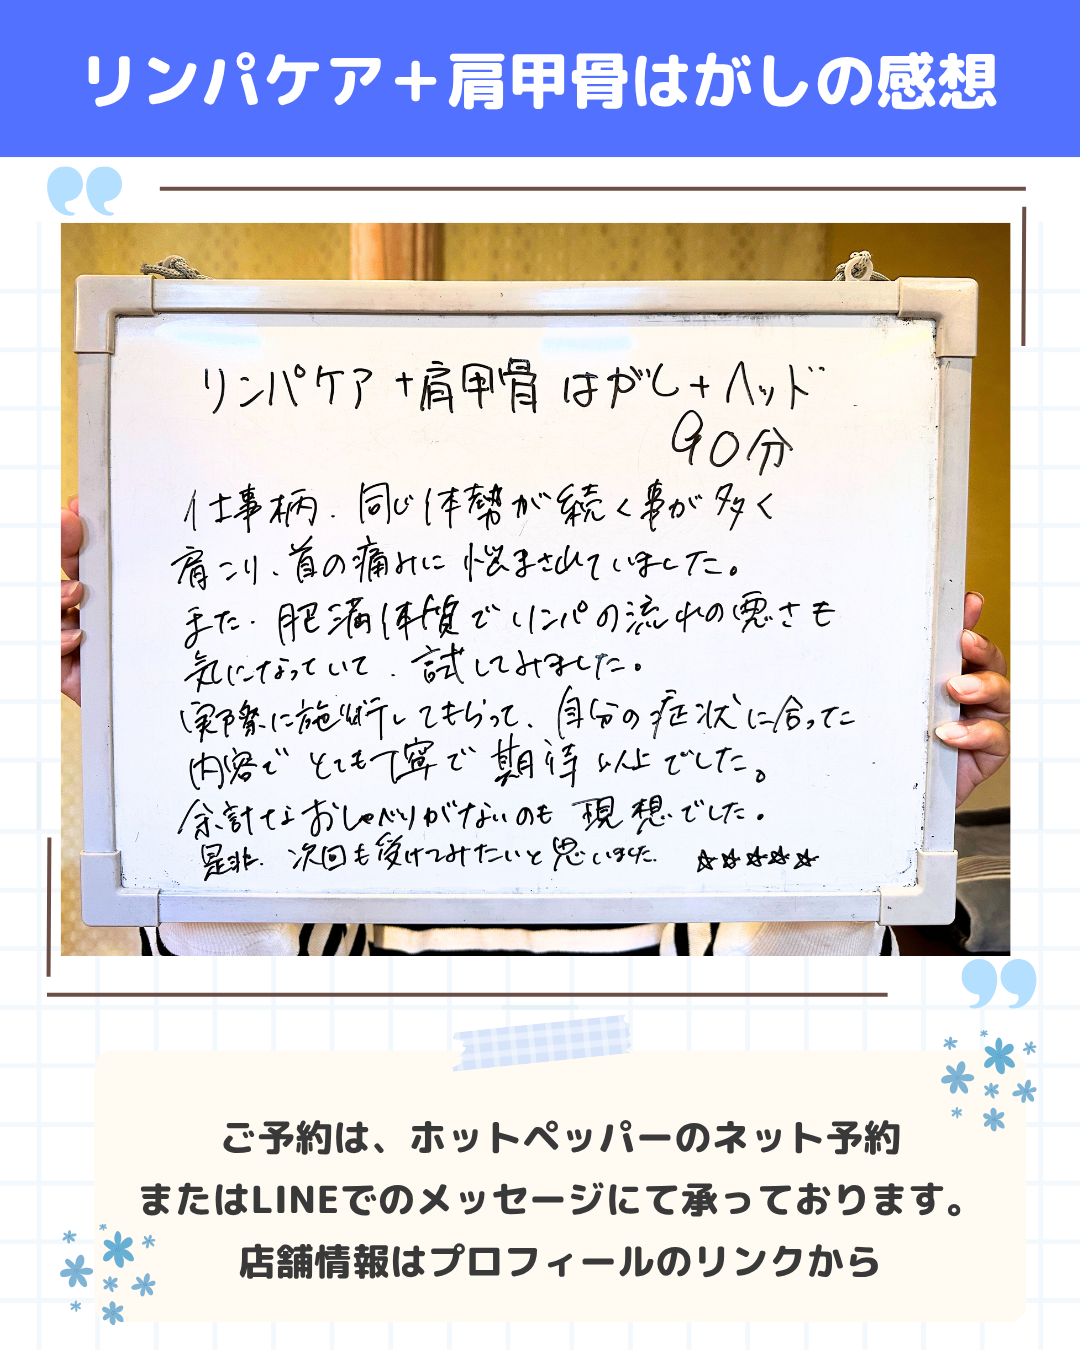 リンパケア＋肩甲骨はがしの感想
リンパケア＋肩甲骨はがし＋ヘッド
90分
仕事柄、同じ体勢が続く事が多く
肩こり、首の痛みに悩まされていました。
また、肥満体質でリンパの流れの悪さも
気になっていて、試してみました。
実際に施術してもらって、自分の症状に合った
内容でとても丁寧で期待以上でした。
余計なおしゃべりがないのも理想でした。
是非、次回も受けてみたいと思いました。 ☆☆☆☆☆
ご予約は、ホットペッパーのネット予約
またはLINEでのメッセージにて承っております。
店舗情報はプロフィールのリンクから